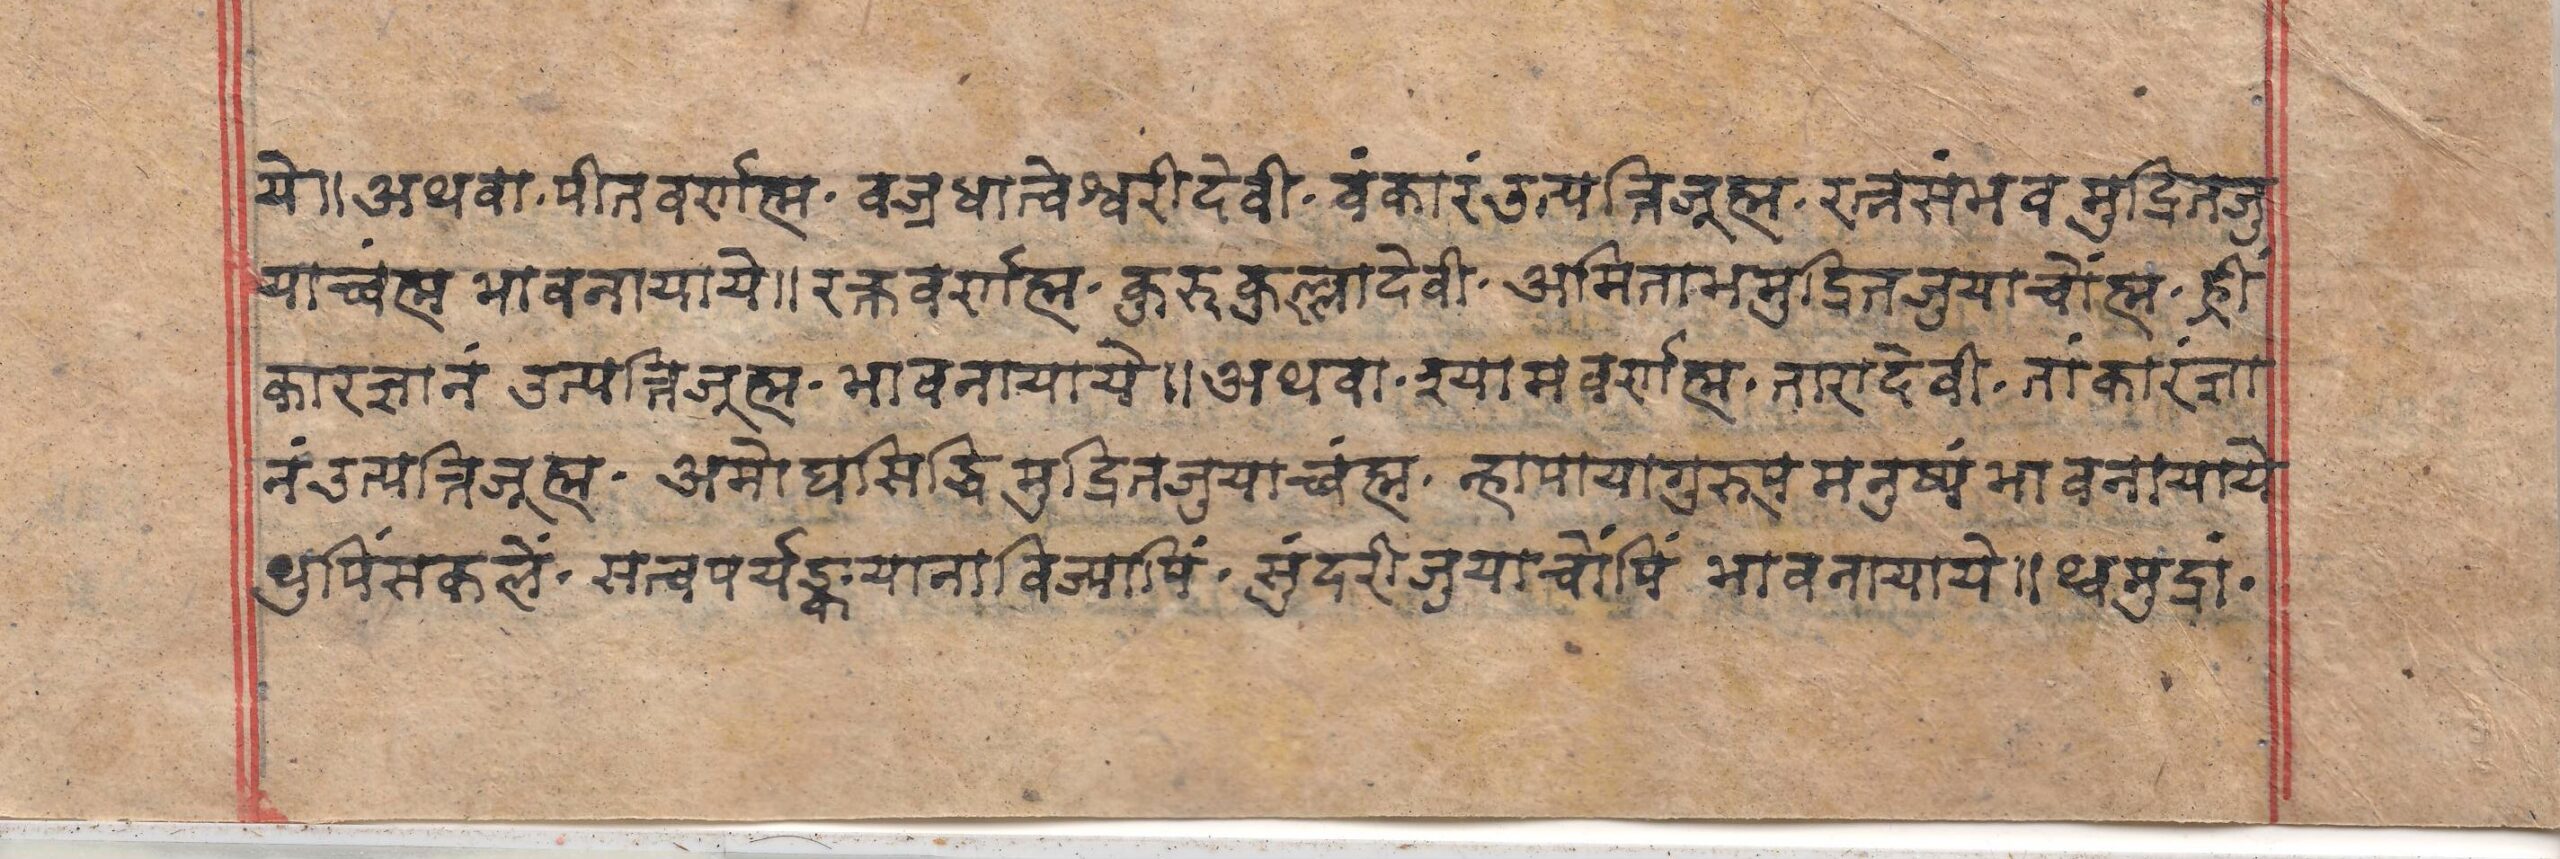 ये॥अथवा·पीतवर्णह्म·वज्रधात्वेश्वरीदेवी·वंकारंउत्पन्निजूह्म·रत्नसंभवमुद्रितजु
याच्वंह्मभावनायाये॥रक्तवर्णह्म·कुरुकुल्लादेवी·अमिताभमुद्रितजुयाचोंह्म·ह्रीं
कारज्ञानं उत्पन्निजूह्म·भावनायाये॥अथवा·श्यामवर्णह्म·तारादेवी·तांकारंज्ञा
नंउत्पन्निजूह्म·अमोघसिद्धिमुद्रितजुयाच्वंह्म·न्हापायागुरूपमनुष्यंभावनायाये
थुपिंसकलें·सत्वपर्यङ्कयानाविज्यापिं·सुंदरीजुयाचोंपिं भावनायाये॥थ्वमुद्रां·